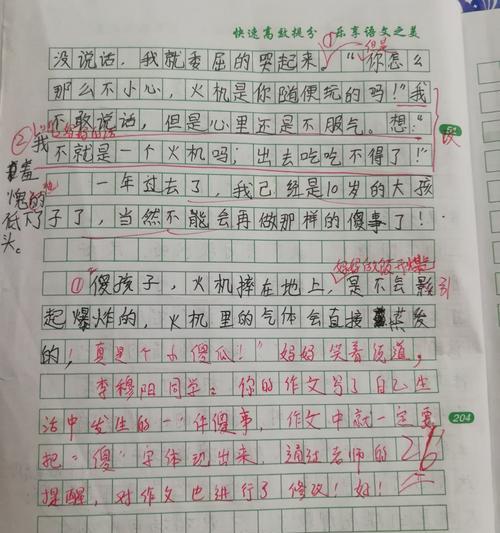 快速高效提分 乐享语文之美
①但是
没说话，我就委屈的哭起来。“你怎么
那么不小心，火机是你随便玩的吗！”我
不敢说话，但是心里还是不服气。想：“
②我
不就是一个火机吗；出去吃吃不得了！”
羞愧的低下了头。
一年过去了，我已经是10岁的大孩
子了，当然不能会再做那样的傻事了！
①“傻孩子，火机摔在地上，是不会影
起爆炸的，火机里的气体会直接蒸发
的！真是个小傻瓜！”妈妈笑着说道，
李穆阳同学：你的作文写了自己生
活中发生的一件傻事，作文中就一定要
204
把“傻”字体现出来，通过老师的
提醒，对作文也进行了修改！好！